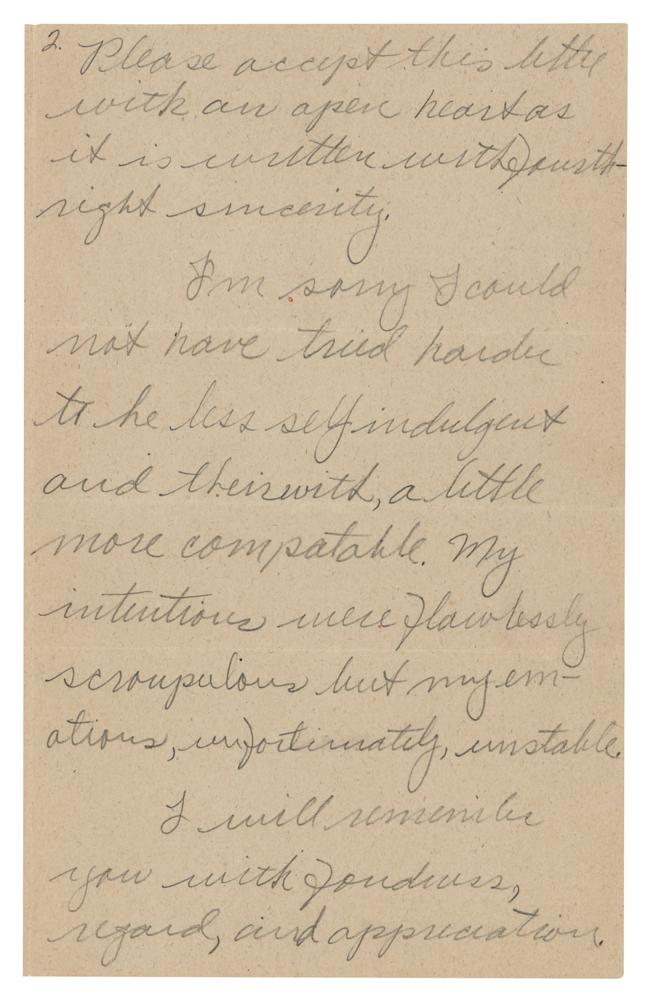 2. Please accept this letter
with an open heart as
it is written with fourth-
right sincerity.
I'm sorry I could
not have tried harder
to be less self indulgent
and therewith, a little
more compatable. My
intentions were flawlessly
scroupulous but my em-
otions, unfortunately, unstable.
I will remember
you with fondness,
regard, and appreciation.